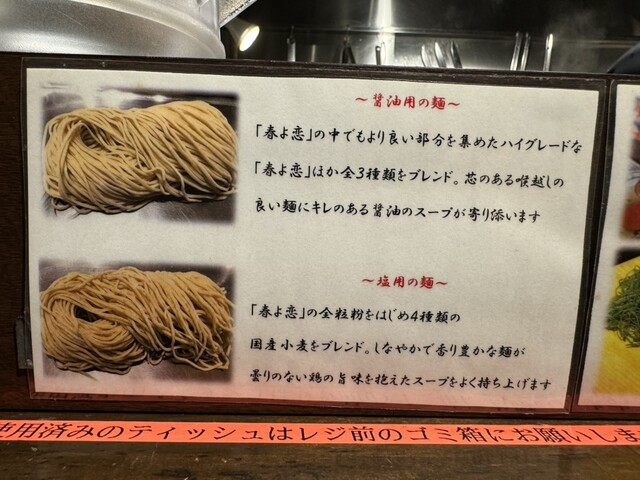 ～醤油用の麺～
「春よ恋」の中でもより良い部分を集めたハイグレードな
「春よ恋」ほか全3種類をブレンド。芯のある喉越しの
良い麺にキレのある醤油のスープが寄り添います
～塩用の麺～
「春よ恋」の全粒粉をはじめ4種類の
国産小麦をブレンド。しなやかで香り豊かな麺が
曇りのない鶏の旨味を抱えたスープをよく持ち上げます
使用済みのティッシュはレジ前のゴミ箱にお願いしま